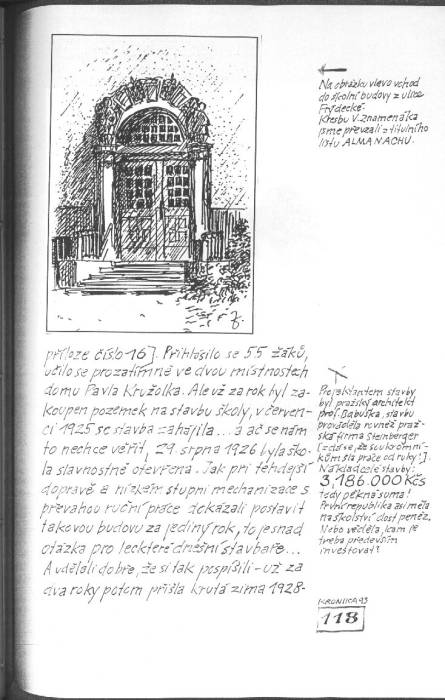 Na obrázku vlevo vchod
do školní budovy z ulice
Frýdecké.
Kresbu V. Znamenáčka
jsme převzali z titulního
listu ALMANACHU.
příloze číslo 16]. Přihlásilo se 55 žáků,
učilo se prozatímně ve dvou místnostech
domu Pavla Kružolka. Ale už za rok byl za-
koupen pozemek na stavbu školy, v červen-
ci 1925 se stavba zahájila... a ač se nám
to nechce věřit, 29. srpna 1926 byla ško-
la slavnostně otevřena. Jak při tehdejší
dopravě a nízkém stupni mechanizace s
převahou ruční práce dokázali postavit
takovou budovu za jediný rok, to je snad
otázka pro leckteré dnešní stavbaře...
A udělali dobře, že si tak pospíšili - už za
dva roky potom přišla krutá zima 1928-
Projektantem stavby
byl pražský architekt
prof. Babuška, stavbu
prováděla rovněž praž-
ská firma Steinberger
[zdá se, že soukromní-
kům šla práce od ruky!].
Náklad celé stavby:
3,186.000 Kčs
tedy pěkná suma!
První republika asi měla
na školství dost peněz.
Nebo věděla, kam je
třeba především
investovat?
KRONIKA 93
118